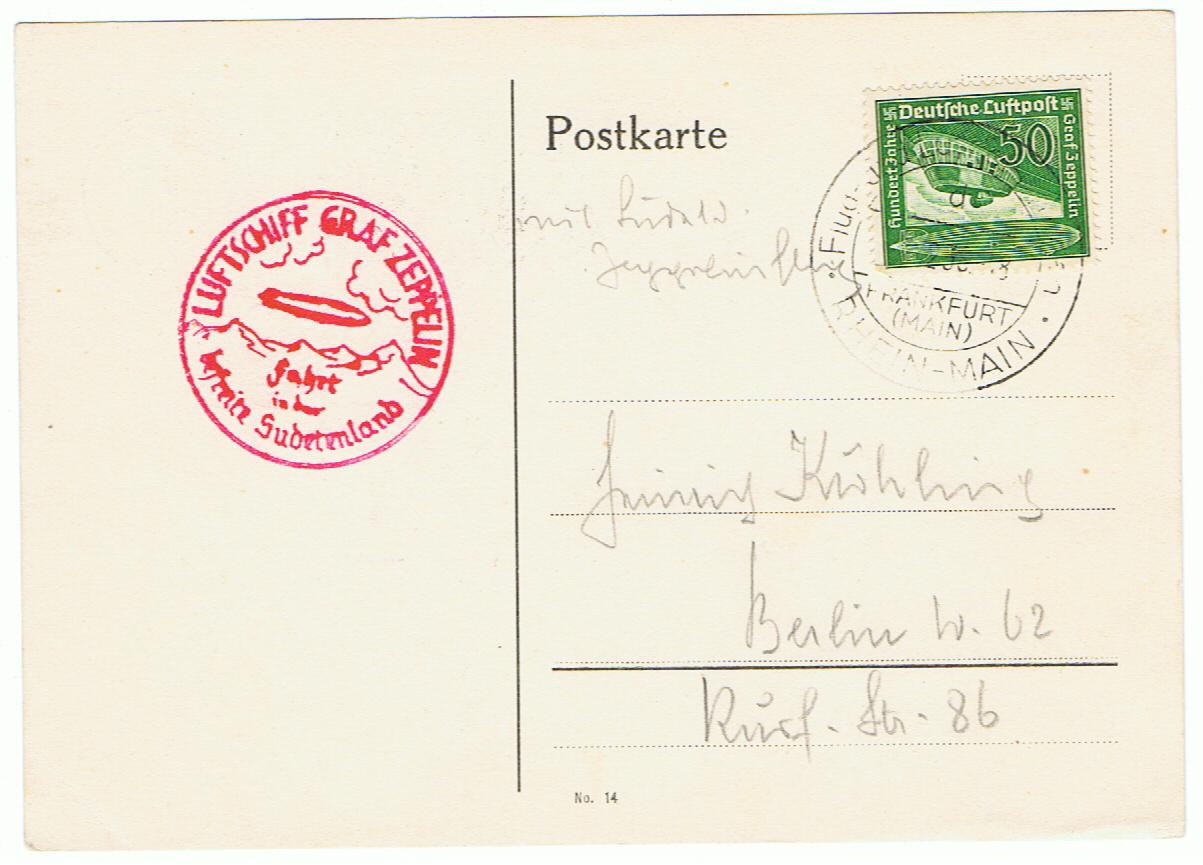 LUFTSCHIFF GRAF ZEPPELIN
Fahrt
in das
befreite Sudetenland
Postkarte
Deutsche Luftpost
Hundert Jahre
50
Graf Zeppelin
mit Sudetd.
Zeppelin
FRANKFURT
(MAIN)
RHEIN-MAIN
Heinrich Köhling
Berlin W. 62
Kurf. Str. 86
No. 14